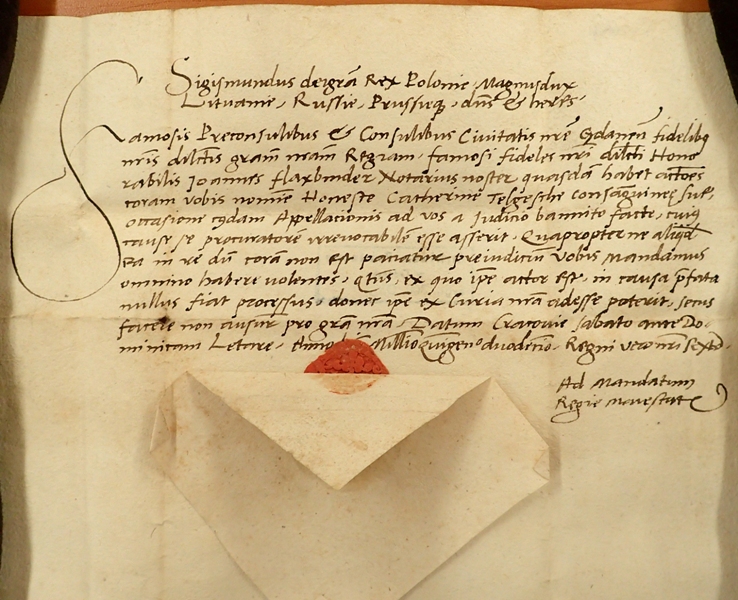 Sigismundus dei grã Rex Polonie Magnusdux
Lituanie, Russie, Prussieqz, dñs & heres.
Famosis Preconsulibus & Consulibus Civitatis nrẽ Gdaneñ fidelibq
nris dilctis gram nram Regiam. famosi fideles nri dilcti Hono
rabilis Joannes flaxbinder Notarius noster quasdã habet actões
coram vobis nomine Honeste Catherine Telgesche consanguineę suę,
occasione cqdam Appellacionis ad vos a judicio bannito facte, cuiq
cause se procuratorẽ irrevocabilẽ esse asserit. Quapropter ne
ea in re dũ corã non est paciatur preiudiciũ vobis Mandamus
omnino habere volentes, qtus, ex quo ipe actor est, in causa p̃fata
nullus fiat processus, donec ipe ex Curia nra adesse poterit, secus
facere non ausuri pro grã nrã. Datum Cracovie sabato ante Do-
minicam Letare. Anno Millio quigeno duodecio. Regni vero nri sexto.
Ad Mandatum
Regie Maiestatę